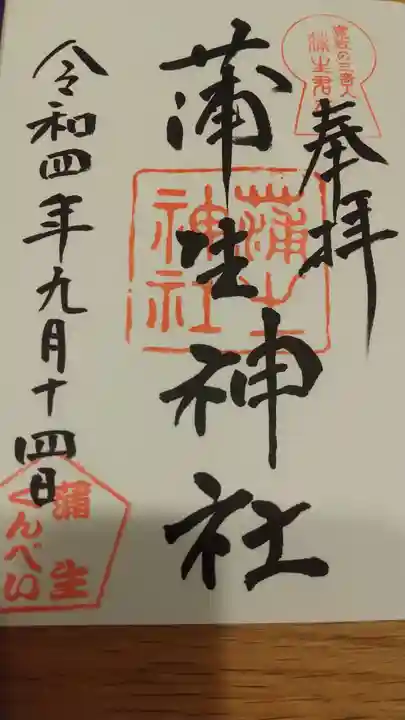 寛政の三奇人
蒲生君平
奉拝
蒲生神社
蒲生神社
令和四年九月十四日
蒲生
くんぺい